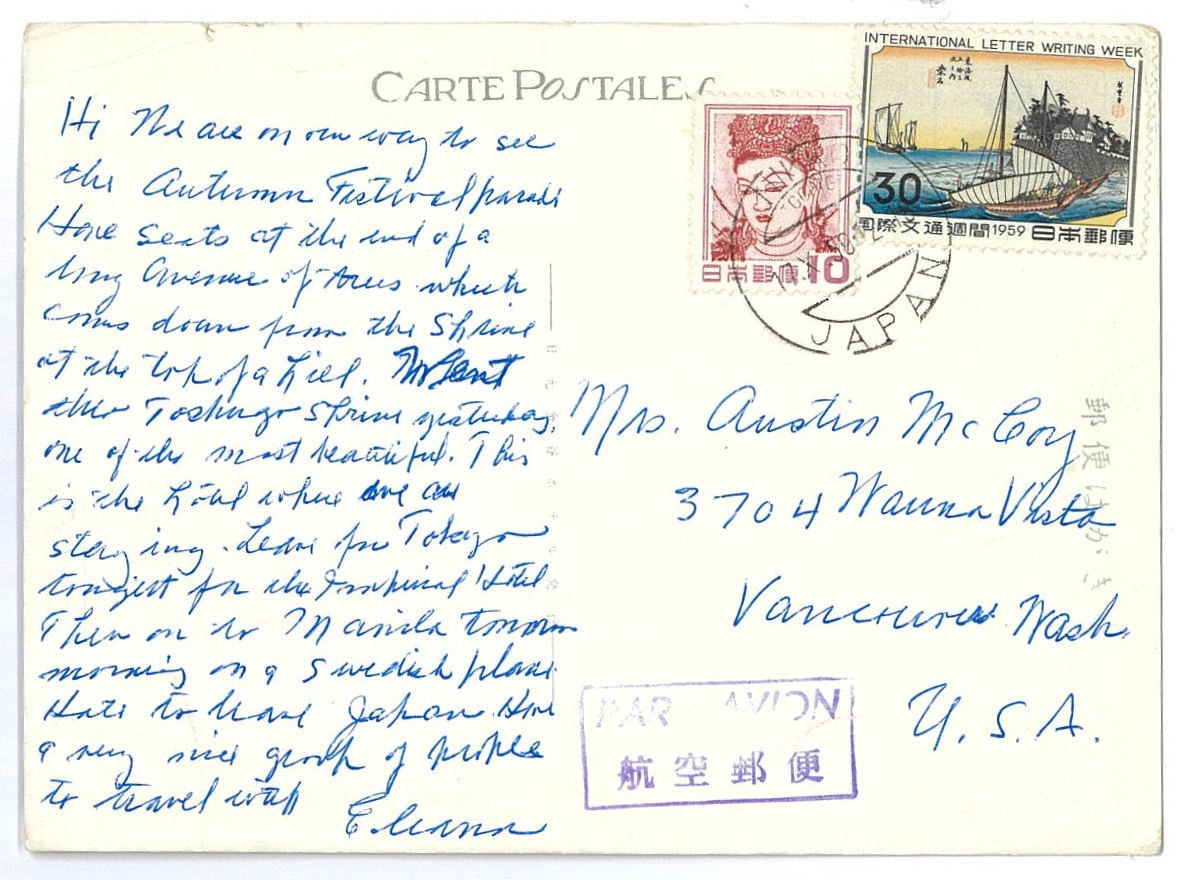 CARTE POSTALE
INTERNATIONAL LETTER WRITING WEEK
30
国際文通週間1959 日本郵便
日本郵便 10
JAPAN
Hi We are on our way to see
the Autumn Festival parade
Have seats at the end of a
long avenue of trees which
comes down from the Shrine
at the top of a hill. We went
thro Toshugo Shrine yesterday,
one of the most beautiful. This
is the hotel where we are
staying. Leave for Tokyo
tonight for the Imperial Hotel
Then on to Manila tomorrow
morning on a Swedish plane
Hate to leave Japan. Have
a very nice group of people
to travel with
Eleanor
Mrs. Austin McCoy
3704 Wauna Vista
Vancouver Wash.
U.S.A.
郵便はがき
PAR AVION
航空郵便